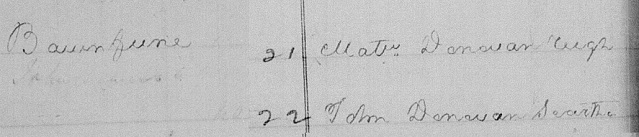 Bawnfune 21 Matw Donovan reigh
22 John Donovan Scarth